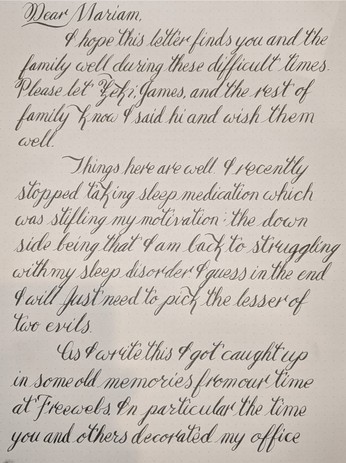 Dear Mariam,
I hope this letter finds you and the
family well during these difficult times.
Please let Zeki, James, and the rest of
family know I said hi and wish them
well.
Things here are well. I recently
stopped taking sleep medication which
was stifling my motivation: the down
side being that I am back to struggling
with my sleep disorder I guess in the end
I will just need to pick the lesser of
two evils.
As I write this I got caught up
in some old memories from our time
at Freewebs. In particular the time
you and others decorated my office